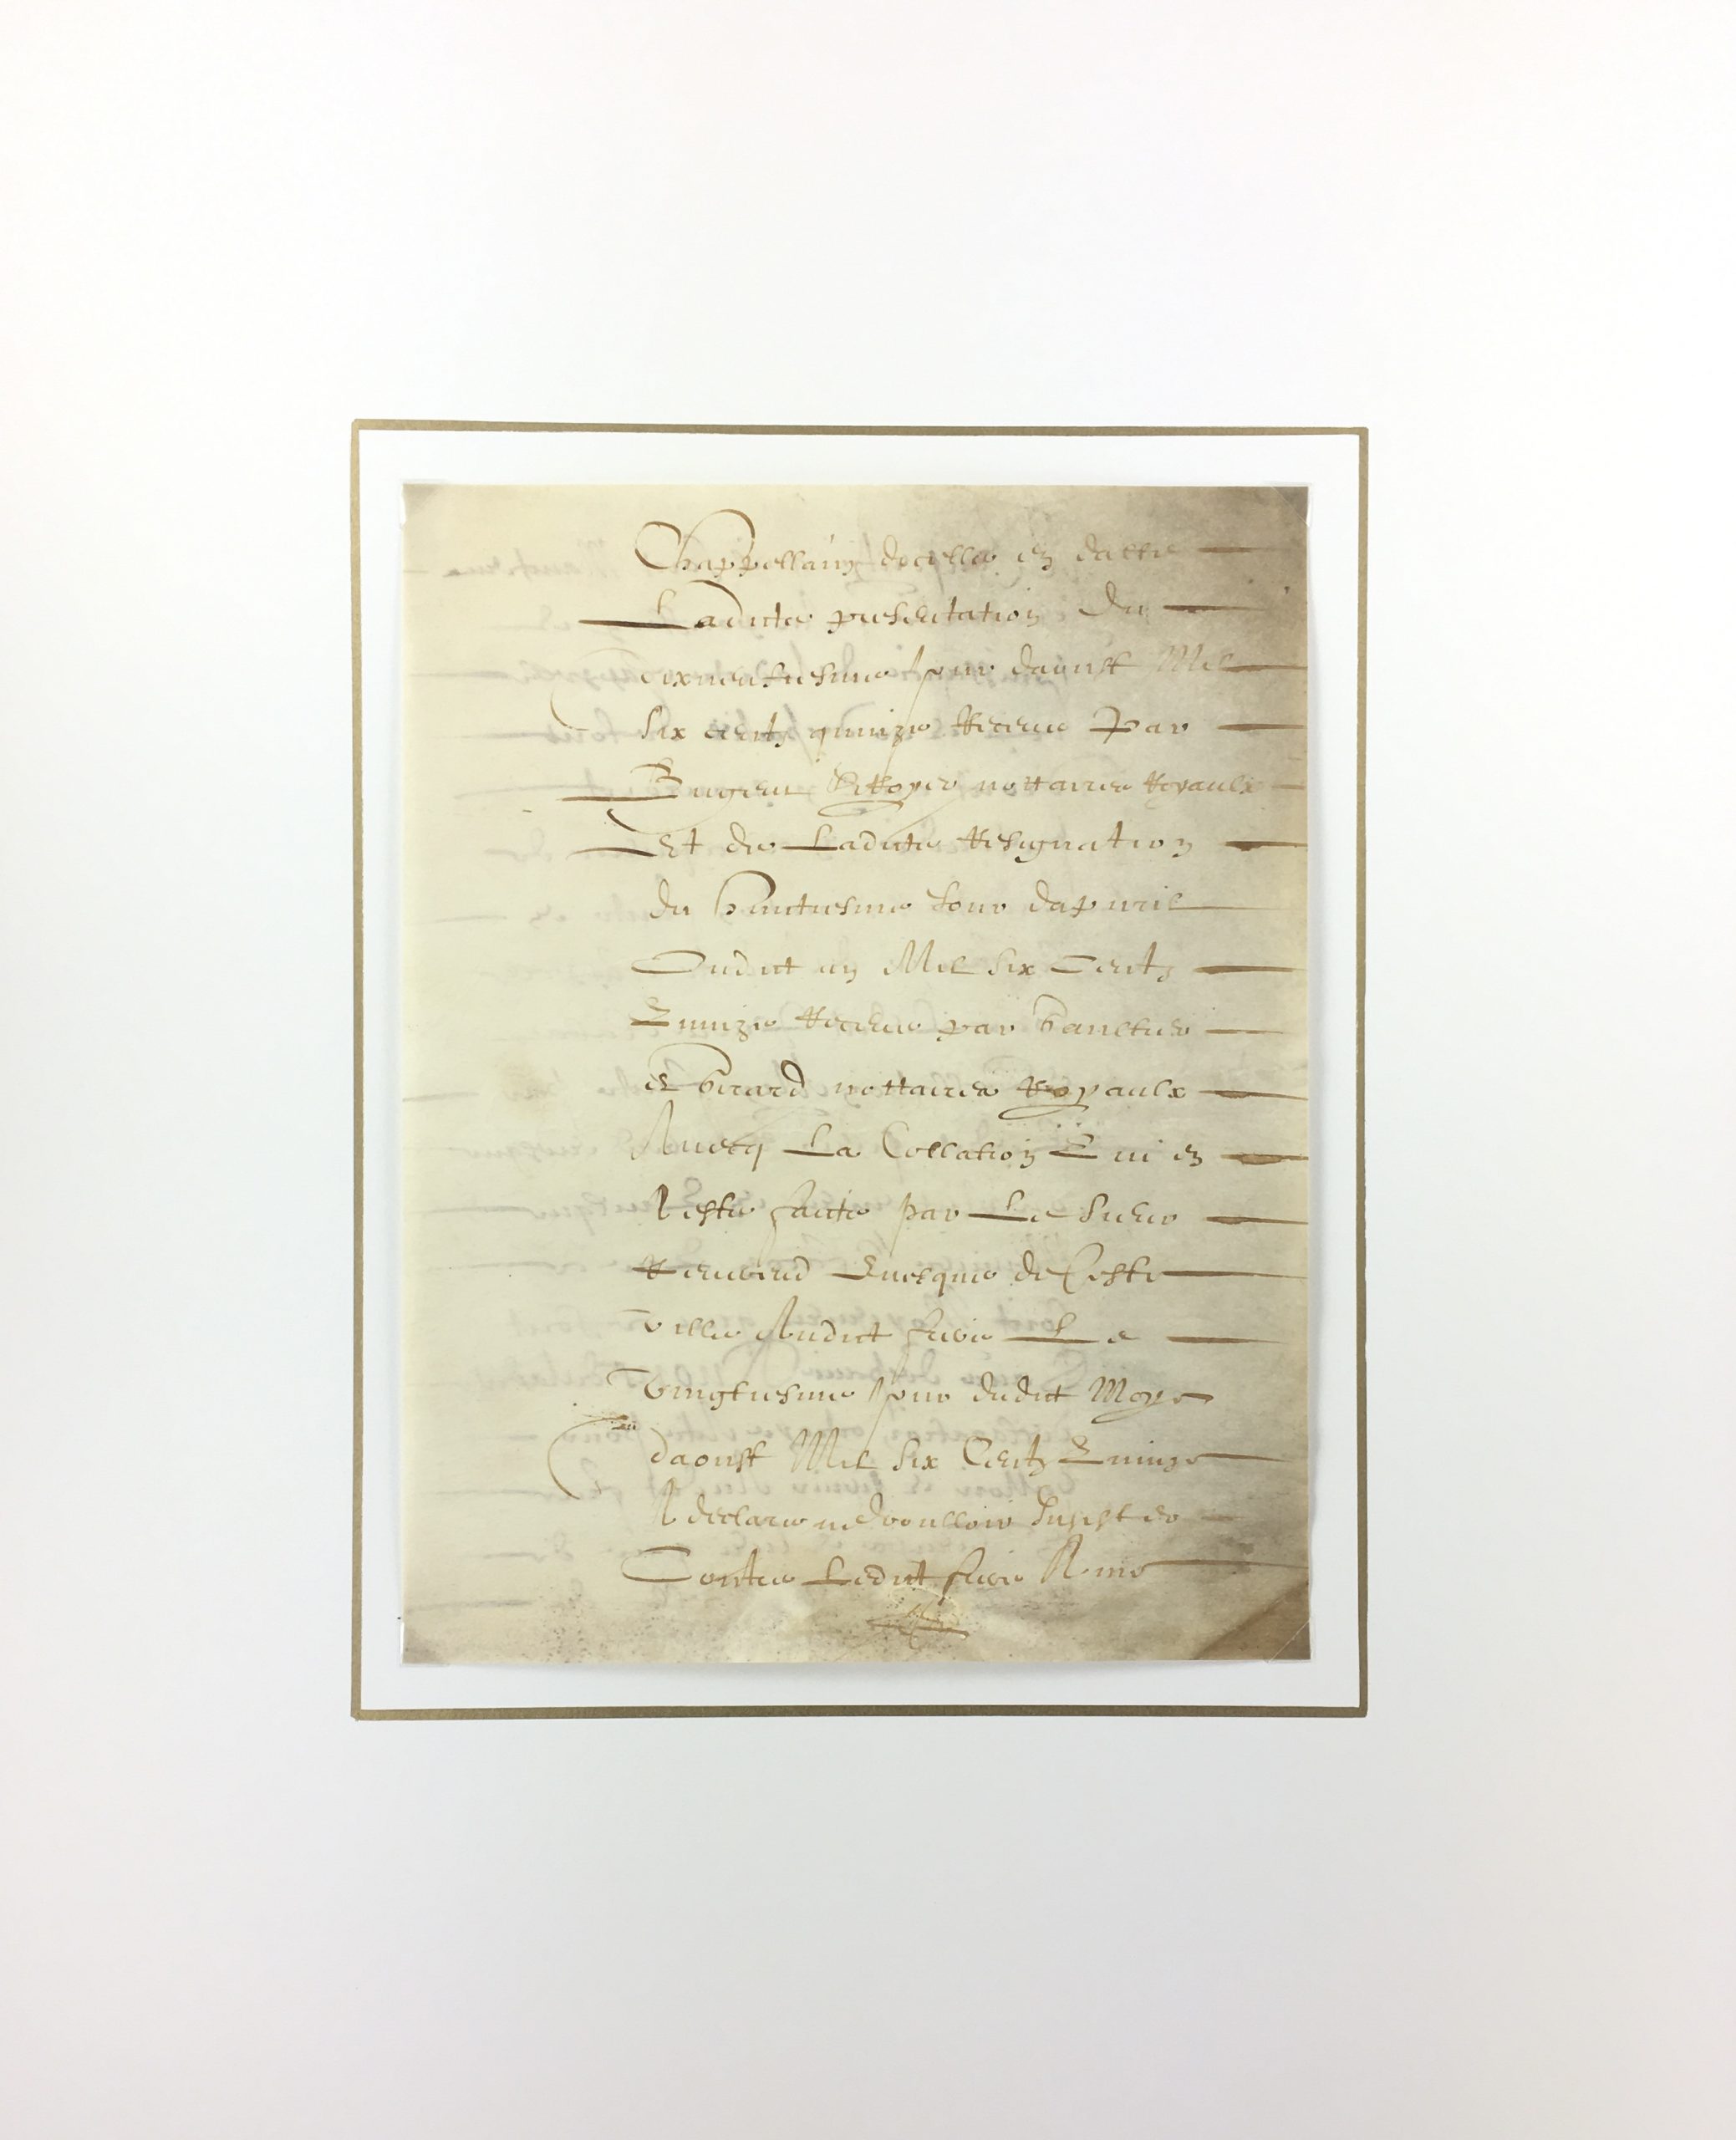 Chappellain dicelle en datte
Ladicte presentation du
dixneufiesme jour daoust Mil
six centz quinze Receue par
et Royer nottaires Royaulx
Et de Ladicte Resignation
du huictiesme jour dapvril
Oudict an Mil six Centz
Quinze Receue par
et Girard nottaires Royaulx
Avecq La Collation Qui en
A este faicte par Le sieur
Reverend Evesque de Ceste
ville Audict Le
vingtiesme jour dudict Moys
daoust Mil six Centz Quinze
A declare ne voulloir Insister
Contre Ledict